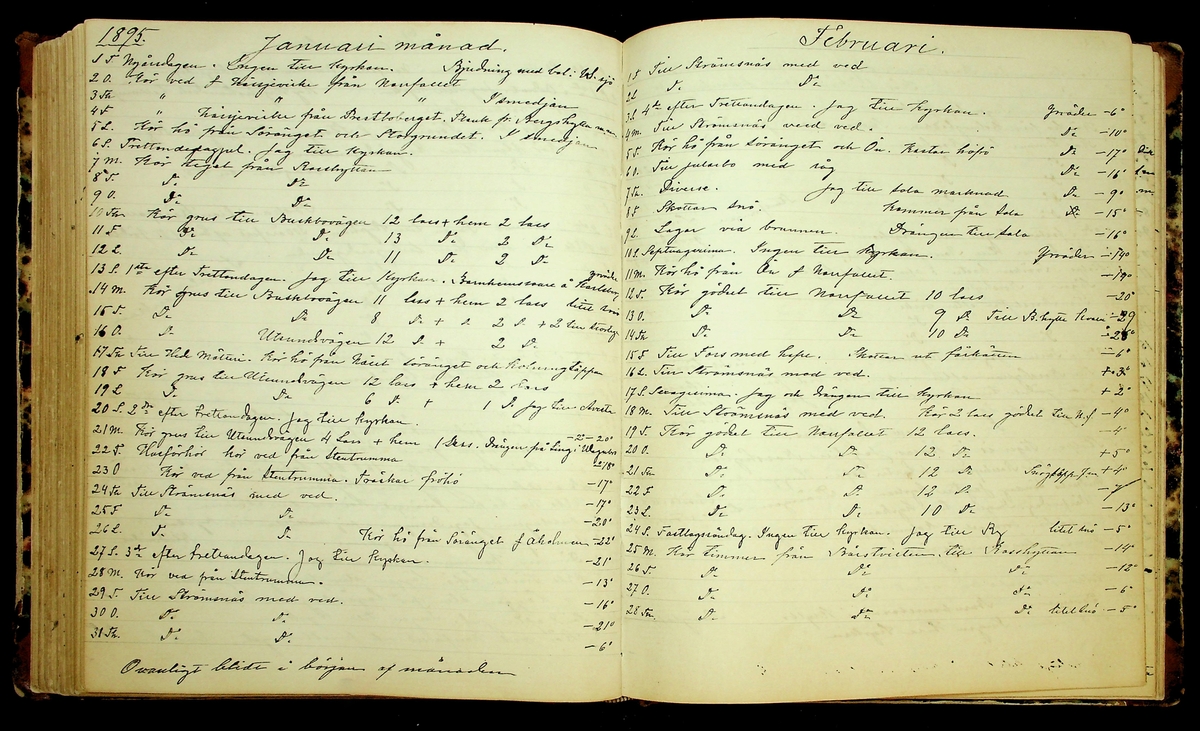 1895.
Januari månad.
1 T Nyårsdagen. Ingen till kyrkan. Bjudning med bal i
2 O. Kör ved & Hässjevirke från Norrfallet
3 Th " " " I smedjan
4 F " Hässjevirke från
5 L. Kör hö från Söränget och Storgrundet. I smedjan
6 S. Trettondedagjul. Jag till kyrkan.
7 M. Kör tegel från Rosshyttan
8 T. Do Do
9 O. Do Do
10 Th. Kör grus till Buskbovägen 12 lass + hem 2 lass
11 F Do Do 13 Do 2 Do
12 L. Do Do 11 Do 2 Do
13 S. 1sta efter Trettondagen. Jag till kyrkan. Barnhemssoaré å Karlsberg
14 M. Kör grus till Buskbovägen 11 lass + hem 2 lass litet snö
15 T. Do Do 8 D. + d. 2 D. + 2 till
16 O. D. Utsundvägen 12 D. + 2 D.
17 Th Till Hed Möllen. Kör hö från Näset Söränget och
18 F Kör grus till Utsundvägen 12 lass + hem 2 lass
19 L D. Do 6 D. + 1 D. Jag till Avesta
20 S. 2dra efter trettondagen. Jag till kyrkan.
21 M. Kör grus till Utsundvägen 4 lass + hem 1 lass. Drängen från –20°
22 T. Husförhör kör ved från Stentrumma –18°
23 O Kör ved från Stentrumma. Tröskar fröhö –17°
24 Th Till Strömsnäs med ved. –17°
25 F Do Do –20°
26 L. D. D. Kör hö från Söränget –22°
27 S. 3dje efter trettondagen. Jag till kyrkan. –21°
28 M. Kör ved från Stentrumma. –13°
29 T. Till Strömsnäs med ved. –16°
30 O. Do Do –21°
31 Th. Do Do –6°
Ovanligt blidt i början af månaden
Februari.
1 F Till Strömsnäs med ved
2 L D. Do
3 S. 4de efter Trettondagen. Jag till kyrkan. Yrväder –6°
4 M. Till Strömsnäs med ved. Do –10°
5 T. Kör hö från Söränget och Ön. Kastar höfrö Do –17°
6 O. Till Jularbo med råg Do –16°
7 Th. Diverse. Jag till Sala marknad Do –9°
8 F Skottar snö. Kommer från Sala Do –15°
9 L. Lagar via brunnen. Drängen till Sala –16°
10 S. Septuagesima. Ingen till kyrkan. Yrväder –14°
11 M. Kör hö från Ön & Norrfallet. –18°
12 T. Kör gödsel till Norrfallet 10 lass –20°
13 O. D. Do 9 D. Till B:hytte kvarn –29
14 Th D. Do 10 Do –28°
15 F Till Fors med hafre. Skottar ut fårkätten –6°
16 L. Till Strömsnäs med ved. +3°
17 S. Sexagesima. Jag och drängen till kyrkan +2°
18 M. Till Strömsnäs med ved. Kör 2 lass gödsel till N.f. –4°
19 T. Kör gödsel till Norrfallet 12 lass. –4°
20 O Do Do 12 Do +5°
21 Th Do Do 12 Do +4°
22 F Do Do 12 D.
23 L. Do Do 10 Do –13°
24 S. Fastlagssöndag. Ingen till kyrkan. Jag till By litet snö –5°
25 M. Kör timmer från till Rosshyttan –14°
26 T Do Do Do –12°
27 O. Do Do Do –6°
28 Th. Do Do Do litet snö –5°